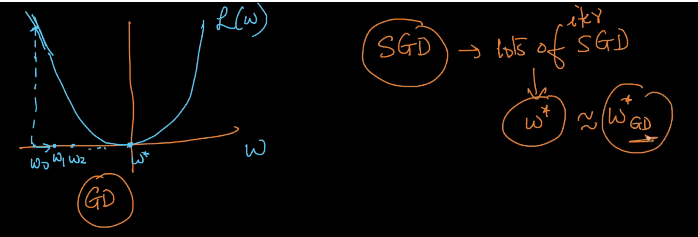 L(w)
w₀ w₁ w₂ ... w*
w
GD
SGD → lots of iter SGD
w* ≈ w*GD